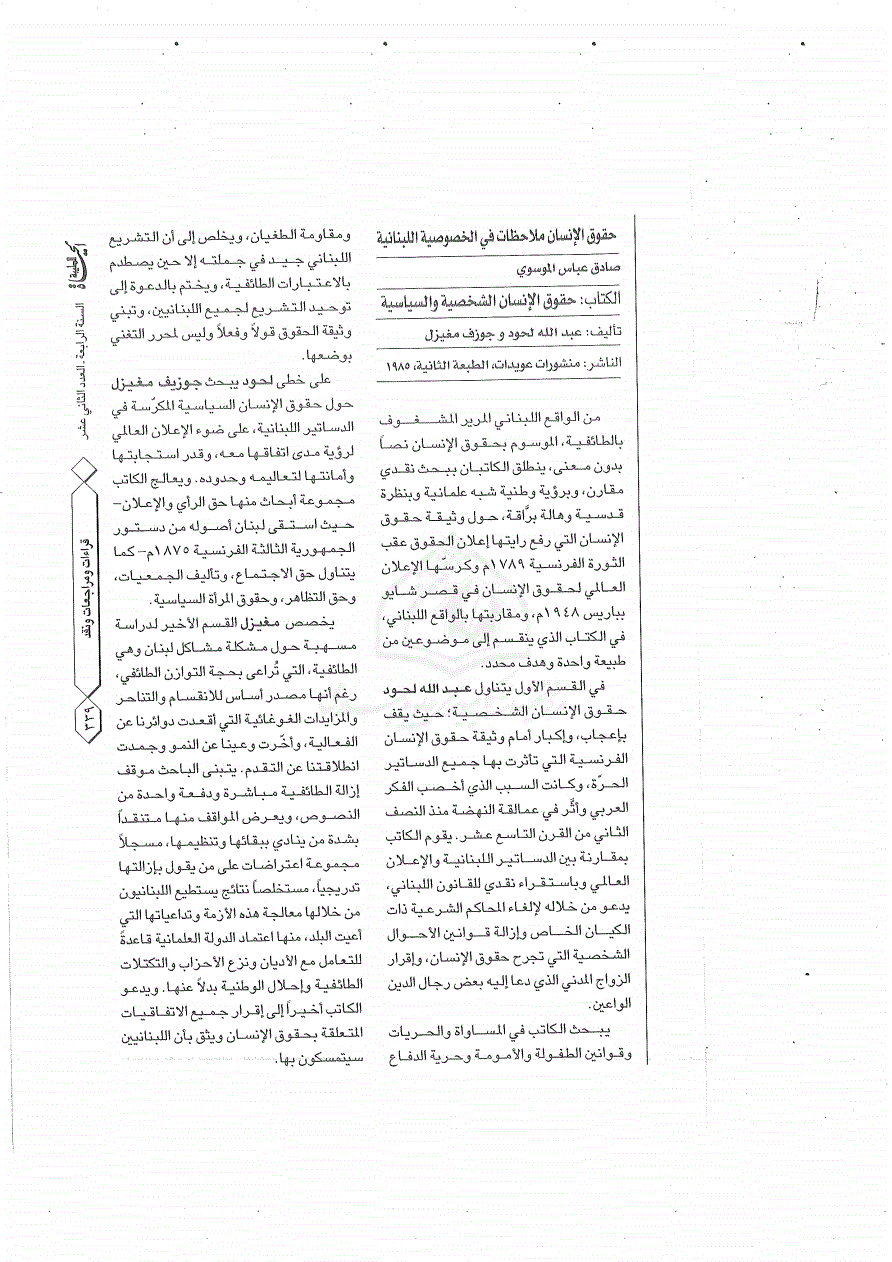 حقوق الإنسان ملاحظات في الخصوصية اللبنانية
صادق عباس الموسوي
الكتاب: حقوق الإنسان الشخصية والسياسية
تأليف: عبد الله لحود و جوزف مغيزل
الناشر: منشورات عويدات، الطبعة الثانية، ١٩٨٥
من الواقع اللبناني المرير المشغوف
بالطائفية، الموسوم بحقوق الإنسان نصاً
بدون معنى، ينطلق الكاتبان ببحث نقدي
مقارن، وبرؤية وطنية شبه علمانية وبنظرة
قدسية وهالة برَّاقة، حول وثيقة حقوق
الإنسان التي رفع رايتها إعلان الحقوق عقب
الثورة الفرنسية ١٧٨٩م وكرسّها الإعلان
العالمي لحقوق الإنسان في قصر شايو
بباريس ١٩٤٨م، ومقاربتها بالواقع اللبناني،
في الكتاب الذي ينقسم إلى موضوعين من
طبيعة واحدة وهدف محدد.
في القسم الأول يتناول عبد الله لحود
حقوق الإنسان الشخصية؛ حيث يقف
بإعجاب، وإكبار أمام وثيقة حقوق الإنسان
الفرنسية التي تأثرت بها جميع الدساتير
الحرّة، وكانت السبب الذي أخصب الفكر
العربي وأثَّر في عمالقة النهضة منذ النصف
الثاني من القرن التاسع عشر. يقوم الكاتب
بمقارنة بين الدساتير اللبنانية والإعلان
العالمي وباستقراء نقدي للقانون اللبناني،
يدعو من خلاله لإلغاء المحاكم الشرعية ذات
الكيان الخاص وإزالة قوانين الأحوال
الشخصية التي تجرح حقوق الإنسان، وإقرار
الزواج المدني الذي دعا إليه بعض رجال الدين
الواعين.
يبحث الكاتب في المساواة والحريات
وقوانين الطفولة والأمومة وحرية الدفاع
ومقاومة الطغيان، ويخلص إلى أن التشريع
اللبناني جيد في جملته إلا حين يصطدم
بالاعتبارات الطائفية، ويختم بالدعوة إلى
توحيد التشريع لجميع اللبنانيين، وتبني
وثيقة الحقوق قولاً وفعلاً وليس لمجرد التغني
بوضعها.
على خطى لحود يبحث جوزيف مغيزل
حول حقوق الإنسان السياسية المكرّسة في
الدساتير اللبنانية، على ضوء الإعلان العالمي
لرؤية مدى اتفاقها معه، وقدر استجابتها
وأمانتها لتعاليمه وحدوده. ويعالج الكاتب
مجموعة أبحاث منها حق الرأي والإعلان–
حيث استقى لبنان أصوله من دستور
الجمهورية الثالثة الفرنسية ١٨٧٥م– كما
يتناول حق الاجتماع، وتأليف الجمعيات،
وحق التظاهر، وحقوق المرأة السياسية.
يخصص مغيزل القسم الأخير لدراسة
مسهبة حول مشكلة مشاكل لبنان وهي
الطائفية، التي تُراعى بحجة التوازن الطائفي،
رغم أنها مصدر أساس للانقسام والتناحر
والمزايدات الغوغائية التي أقعدت دوائرنا عن
الفعالية، وأخّرت وعينا عن النمو وجمدت
انطلاقتنا عن التقدم. يتبنى الباحث موقف
إزالة الطائفية مباشرة ودفعة واحدة من
النصوص، ويعرض المواقف منها منتقداً
بشدة من ينادي ببقائها وتنظيمها، مسجلاً
مجموعة اعتراضات على من يقول بإزالتها
تدريجياً، مستخلصاً نتائج يستطيع اللبنانيون
من خلالها معالجة هذه الأزمة وتداعياتها التي
أعيت البلد، منها اعتماد الدولة العلمانية قاعدةً
للتعامل مع الأديان ونزع الأحزاب والتكتلات
الطائفية وإحلال الوطنية بدلاً عنها. ويدعو
الكاتب أخيراً إلى إقرار جميع الاتفاقيات
المتعلقة بحقوق الإنسان ويثق بأن اللبنانيين
سيتمسكون بها.
الحياة الطيبة
السنة الرابعة، العدد الثاني عشر
قراءات ومراجعات ونقد
٣٣٩